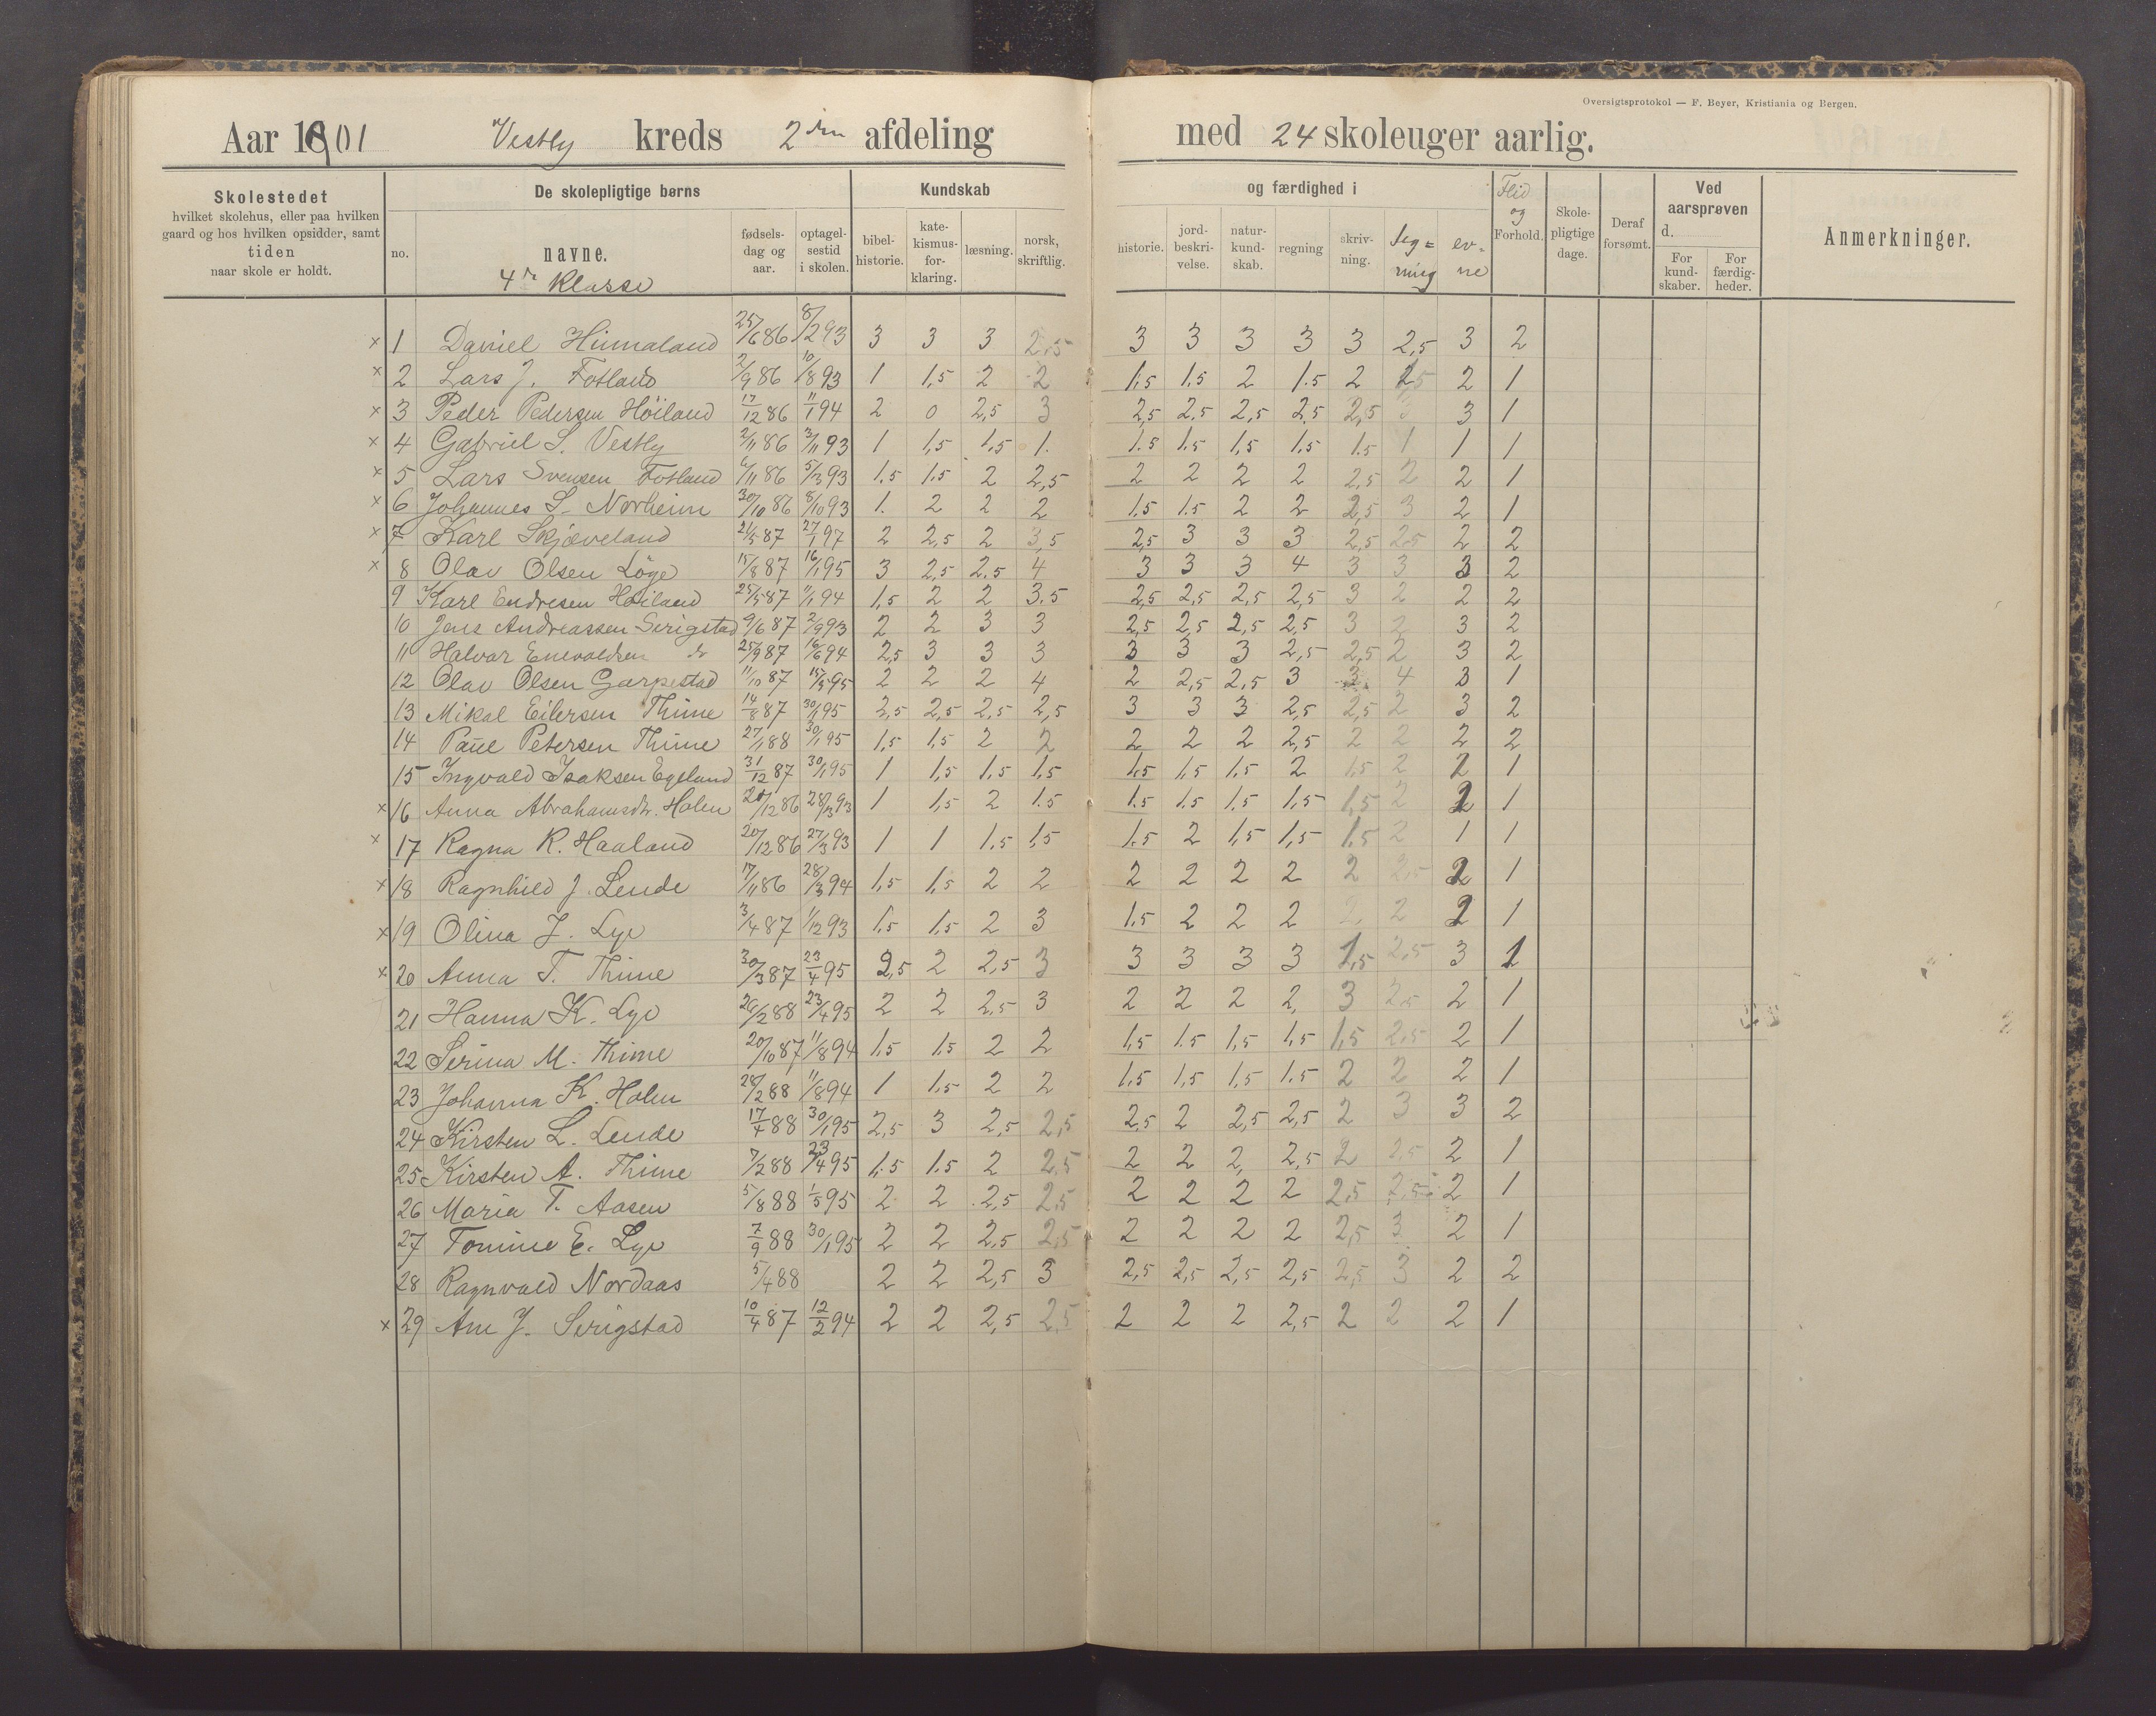 Oversigtsprotokol — F. Beyer, Kristiania og Bergen.
Aar 1901 Vestly kreds 2den afdeling med 24 skoleuger aarlig.
Skolestedet hvilket skolehus, eller paa hvilken gaard og hos hvilken opsidder, samt tiden naar skole er holdt.
De skolepligtige børns
no. navne. fødsels-dag og aar. optagel-sestid i skolen.
Kundskab og færdighed i
bibel-historie. kate-kismus-for-klaring. læsning. norsk, skriftlig. historie. jord-beskri-velse. natur-kund-skab. regning skriv-ning. Teg=ning ev-ne
Flid og Forhold. Skole-pligtige dage. Deraf forsømt. Ved aarsprøven d. For kund-skaber. For færdig-heder. Anmerkninger.
4de Klasse
x 1 Daniel Hiimaland 25/6 86 8/2 93 3 3 3 2.5 3 3 3 3 3 2,5 3 2
x 2 Lars J. Fotland 2/9 86 10/8 93 1 1,5 2 2 1,5 1.5 2 1.5 2 2 1
x 3 Peder Pedersen Höiland 17/12 86 11/1 94 2 0 2,5 3 2,5 2.5 2,5 2.5 2,5 3 3 1
x 4 Gabriel S. Vestly 2/11 86 3/11 93 1 1,5 1.5 1. 1.5 1.5 1,5 1.5 1.5 1 1 1
x 5 Lars Svensen Fotland 6/11 86 5/3 93 1.5 1.5 2 2,5 2 2 2 2 2,5 2 2 1
x 6 Johannes S. Norheim 30/10 86 8/10 93 1. 2 2 2 1.5 1.5 2 2 2,5 3 2 1
x 7 Karl Skjæveland 21/5 87 27/1 97 2 2,5 2 3,5 2,5 3 3 3 2,5 2.5 2 2
x 8 Olav Olsen Löge 15/8 87 16/1 95 3 2,5 2.5 4 3 3 3 4 3 3 3 2
9 Karl Endresen Höiland 25/5 87 11/1 94 1,5 2 2 3.5 2,5 2,5 2,5 2,5 3 2 2 2
10 Jens Andreassen Serigstad 9/6 87 2/9 93 2 2 3 3 2,5 2,5 2,5 2,5 3 2 3 2
11 Halvar Enevoldsen do 25/9 87 16/6 94 2,5 3 3 3 3 3 3 2,5 2,5 2 3 2
12 Olav Olsen Garpestad 11/10 87 15/3 95 2 2 2 4 2 2,5 2,5 3 3 4 3 1
13 Mikal Eilersen Thime 14/8 87 30/1 95 2,5 2,5 2,5 2,5 3 3 3 2,5 2,5 2 3 2
14 Paul Petersen Thime 27/1 88 30/1 95 1,5 1,5 2 2 2 2 2 2,5 2 2 2 2
15 Ingvald Isaksen Egeland 31/12 87 30/1 95 1 1,5 1,5 1,5 1,5 1,5 1,5 2 1,5 2 2 1
x 16 Anna Abrahamsdtr. Holen 12 86 28/3 93 1 1,5 2 1.5 1.5 1.5 1.5 1,5 1,5 2 2 1
x 17 Ragna R. Haaland 20/12 86 27/3 93 1 1 1.5 1,5 1.5 2 1,5 1,5 1,5 2 1 1
x 18 Ragnhild J. Lende 17/11 86 28/3 94 1,5 1,5 2 2 2 2 2 2 2 2,5 2 1
x 19 Olina J. Lye 3/4 87 1/12 93 1,5 1,5 2 3 1.5 2 2 2 2 2 2 1
x 20 Anna T. Thime 30/3 87 23/4 95 2,5 2 2,5 3 3 3 3 3 1,5 2,5 3 1
21 Hanna K. Lye 26/2 88 23/4 95 2 2 2,5 3 2 2 2 2, 3 2,5 2 1
22 Serina M. Thime 20/10 87 11/8 94 1,5 1.5 2 2 1,5 1.5 1,5 1,5 1,5 2,5 2 1
23 Johanna K. Holen 28/2 88 11/8 94 1 1,5 2 2 1,5 1,5 1,5 1.5 2 2 2 1
24 Kirsten L. Lende 17/4 88 30/1 95 2,5 3 2,5 2,5 2,5 2 2,5 2,5 2 3 3 2
25 Kirsten A. Thime 7/2 88 23/4 95 1.5 1.5 2 2,5 2 2 2, 2,5 2 2,5 2 1
26 Maria T. Aasen 5/8 88 1/5 95 2 2 2,5 2,5 2 2 2 2 2,5 2,5 2 1
27 Tomine E. Lye 7/9 88 30/1 95 2 2 2,5 2,5 2 2 2 2 2,5 3 2 1
28 Ragnvald Nordaas 5/4 88 2 2 2,5 3 2,5 2,5 2,5 2,5 2,5 3 2 2
x 29 Ane J. Serigstad 10/4 87 12/2 94 2 2 2,5 2,5 2 2 2 2,5 2 2 2 1